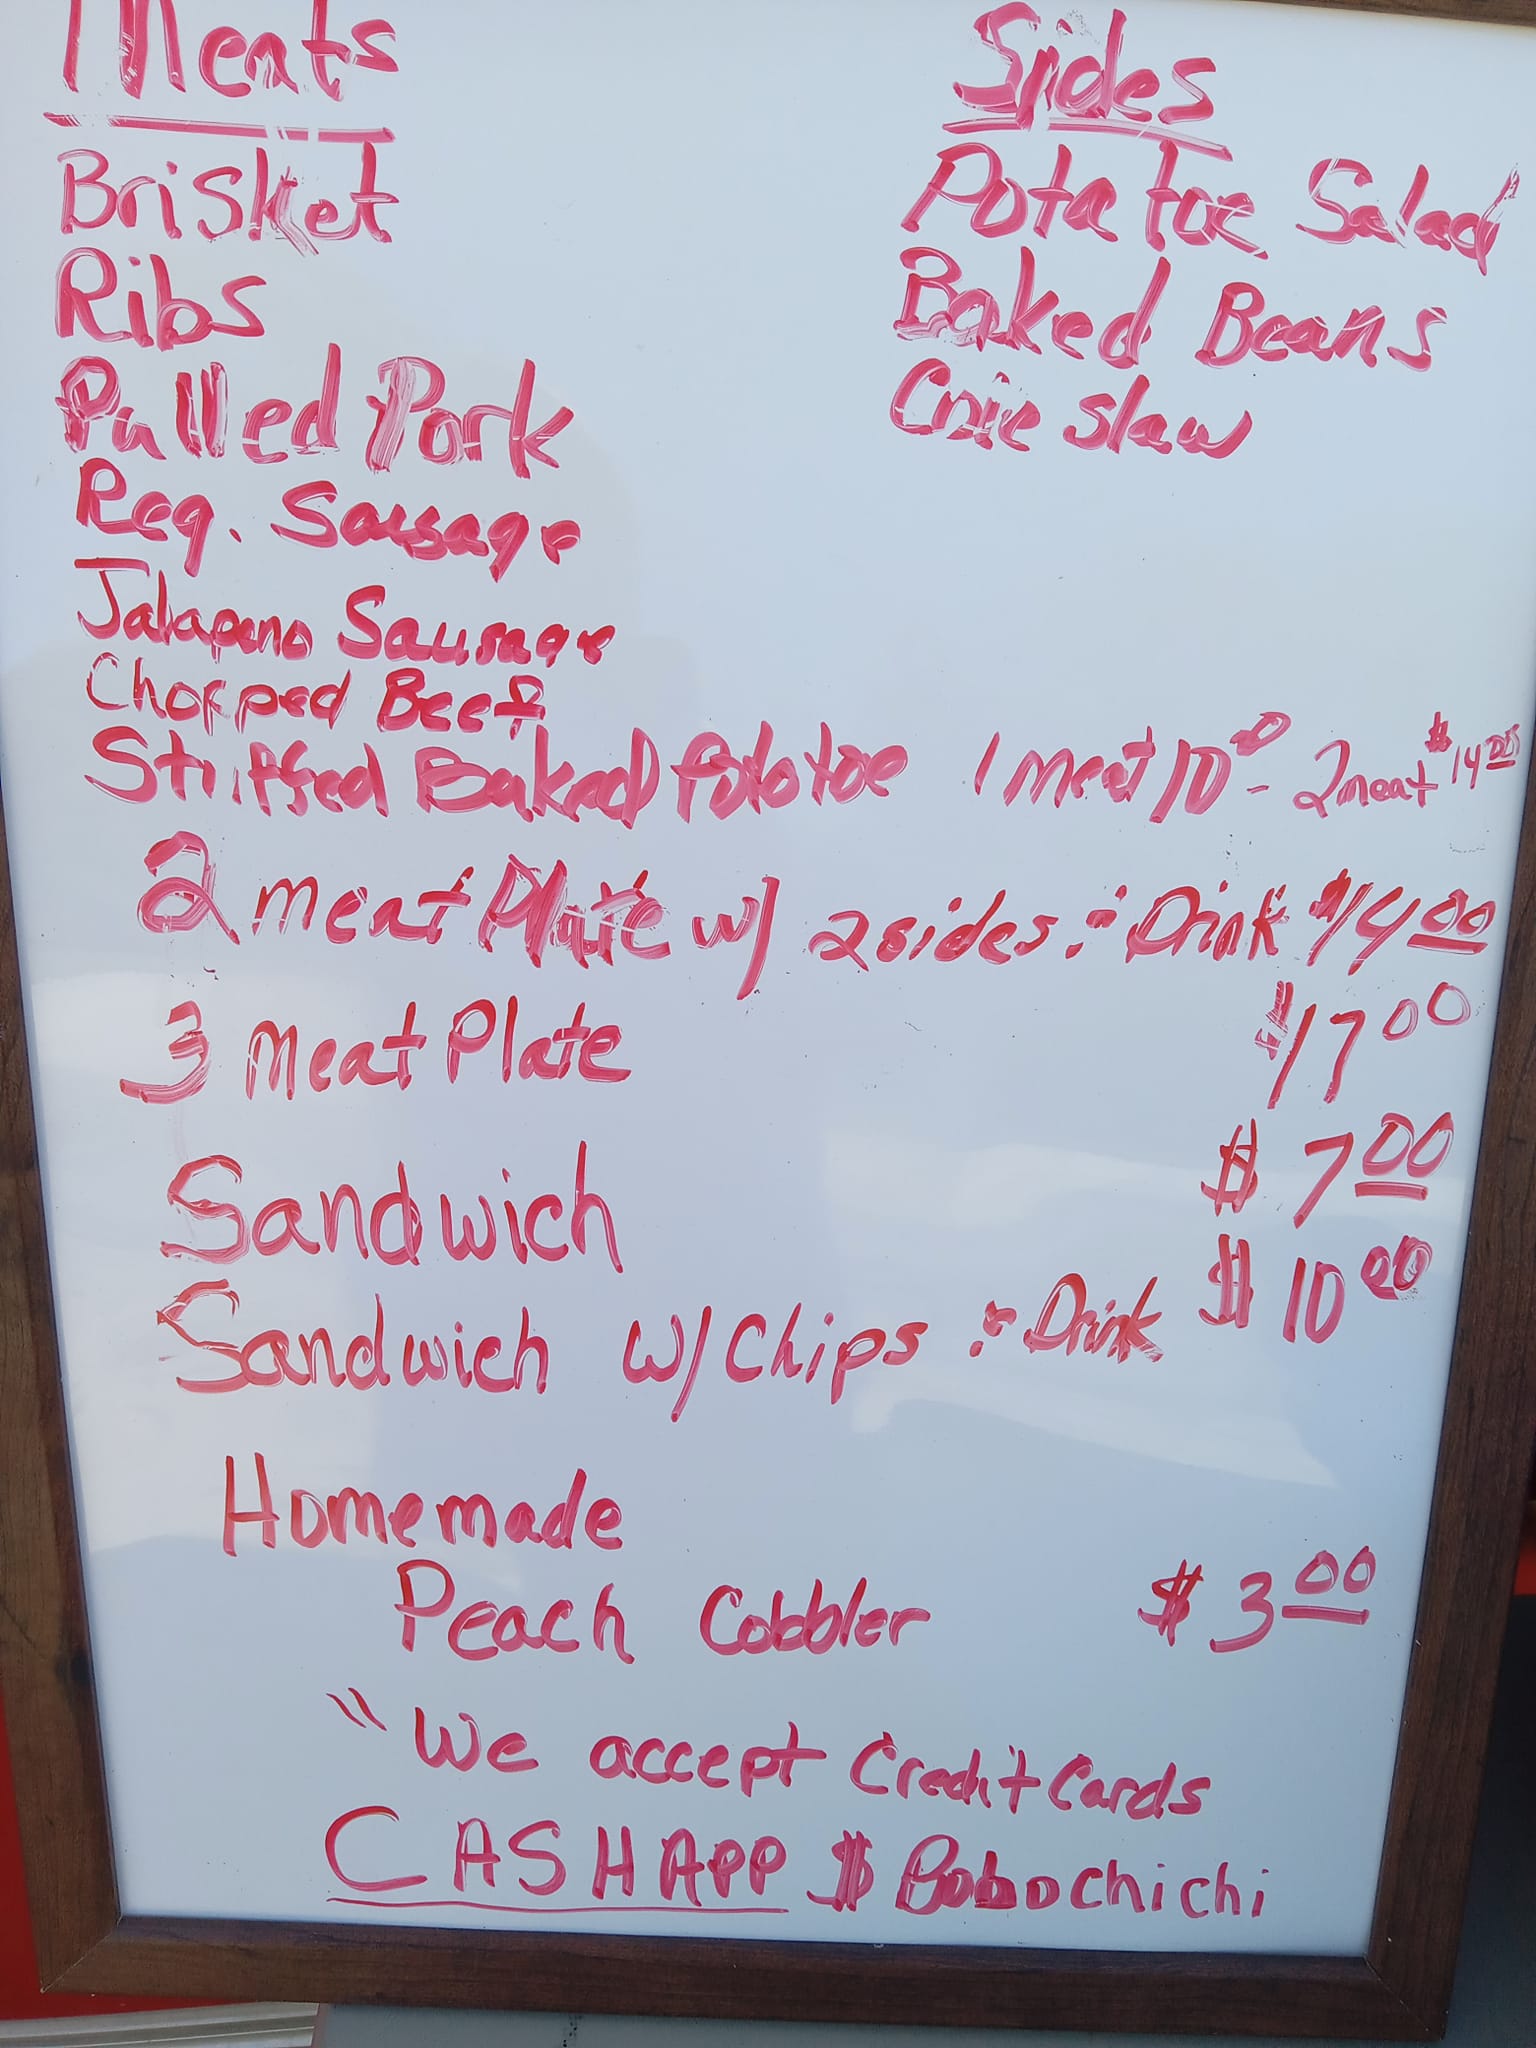 Meats
Brisket
Ribs
Pulled Pork
Reg. Sausage
Jalapeno Sausage
Chopped Beef
Sides
Potatoe Salad
Baked Beans
Slaw
Stuffed Baked Potatoe 1 meat 10.00 - 2 meat $14.00
2 meat Plate w/ 2 sides & Drink $14.00
3 meat Plate $17.00
Sandwich $7.00
Sandwich w/ Chips & Drink $10.00
Homemade
Peach Cobbler $3.00
"We accept Credit Cards
CASHAPP $Bobochichi